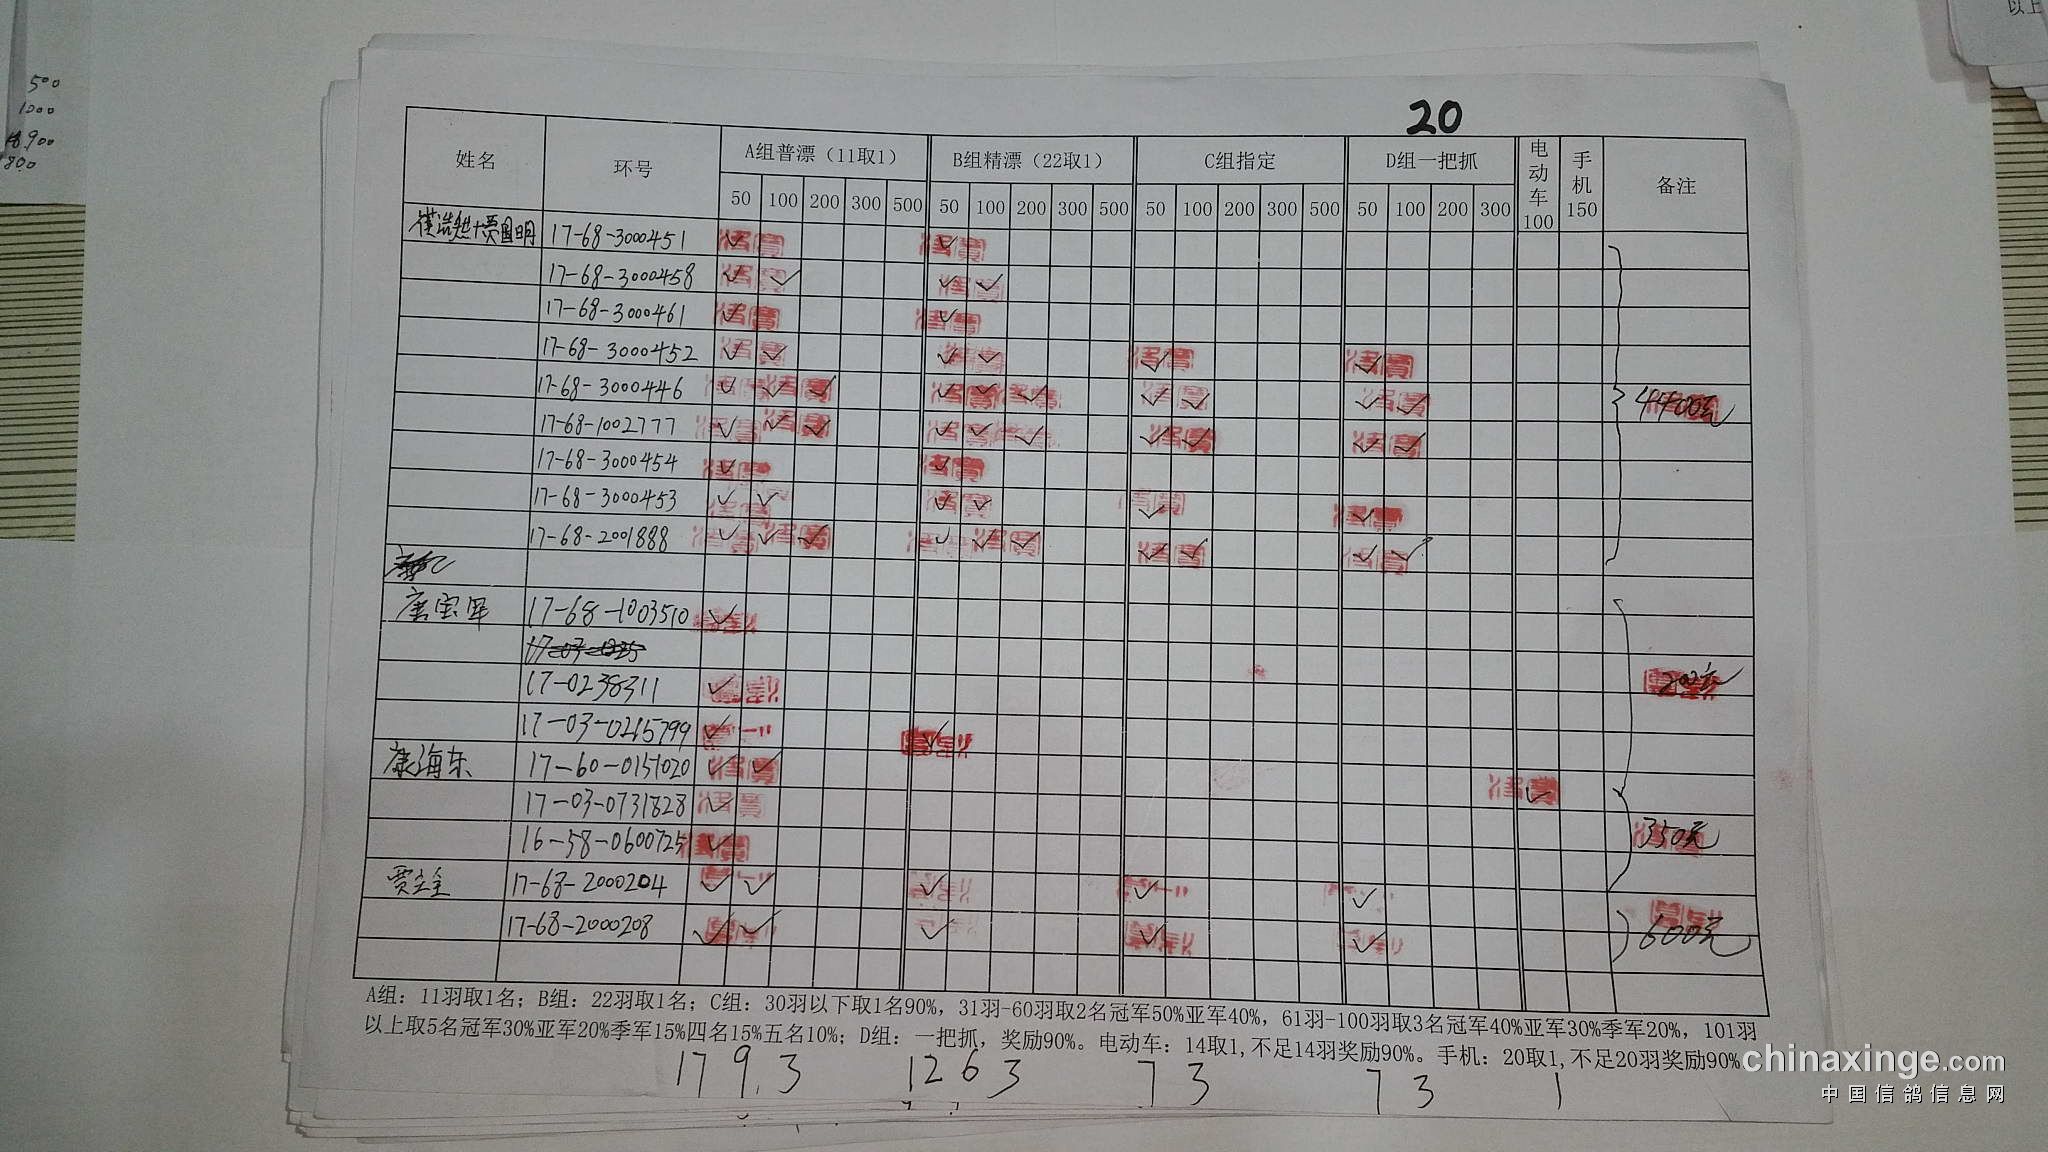 500
1000
900
800
以上
20
姓名 环号 A组普漂（11取1） B组精漂（22取1） C组指定 D组一把抓 电动车100 手机150 备注
50 100 200 300 500 50 100 200 300 500 50 100 200 300 500 50 100 200 300
17-68-3000451 ✓ ✓
17-68-3000458 ✓ ✓ ✓ ✓
17-68-3000461 ✓ ✓
17-68-3000452 ✓ ✓ ✓ ✓ ✓ ✓
17-68-3000446 ✓ ✓ ✓ ✓ ✓ ✓ ✓ ✓ ✓ ✓ 4400元
17-68-1002777 ✓ ✓ ✓ ✓ ✓ ✓ ✓ ✓ ✓ ✓
17-68-3000454 ✓ ✓
17-68-3000453 ✓ ✓ ✓ ✓ ✓ ✓
17-68-2001888 ✓ ✓ ✓ ✓ ✓ ✓ ✓ ✓ ✓ ✓
康宝军 17-68-1003510 ✓
17-0238311 ✓ 200元
17-03-0265799 ✓ ✓
康海东 17-60-0151020 ✓ ✓
17-03-0731828 ✓ ✓
16-58-0600725 ✓ 350元
17-68-2000204 ✓ ✓ ✓ ✓ ✓
17-68-2000208 ✓ ✓ ✓ ✓ ✓ 600元
A组：11羽取1名；B组：22羽取1名；C组：30羽以下取1名90%，31羽-60羽取2名冠军50%亚军40%，61羽-100羽取3名冠军40%亚军30%季军20%，101羽
以上取5名冠军30%亚军20%季军15%四名15%五名10%；D组：一把抓，奖励90%。电动车：14取1,不足14羽奖励90%。手机：20取1,不足20羽奖励90%
17 9 3 12 6 3 7 3 7 3 1
chinaxinge.com
中国信鸽信息网